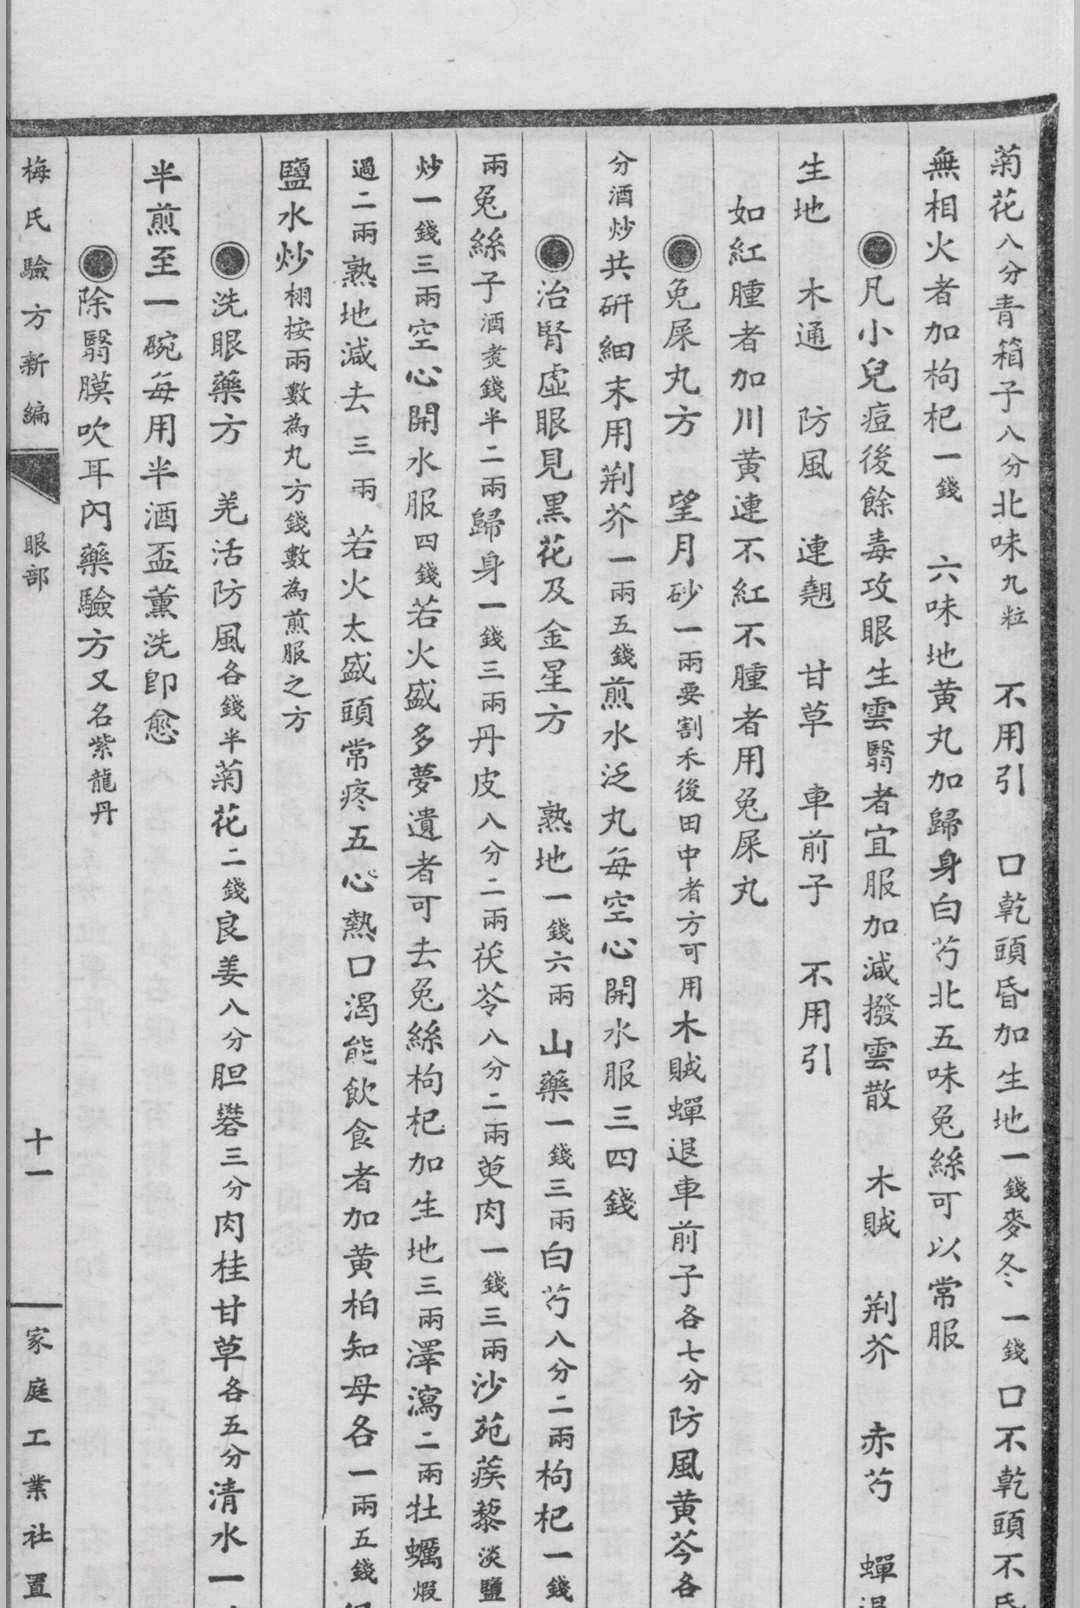 菊花八分青箱子八分北味九粒　不用引　口乾頭昏加生地一錢麥冬一錢口不乾頭不昏
無相火者加枸杞一錢　六味地黃丸加歸身白芍北五味兔絲可以常服
◉凡小兒痘後餘毒攻眼生雲翳者宜服加減撥雲散　木賊　荆芥　赤芍　蟬退
生地　木通　防風　連翹　甘草　車前子　不用引
如紅腫者加川黃連不紅不腫者用兔屎丸
◉兔屎丸方　望月砂一兩要割禾後田中者方可用木賊蟬退車前子各七分防風黃芩各
分酒炒共研細末用荆芥一兩五錢煎水泛丸每空心開水服三四錢
◉治腎虛眼見黑花及金星方　熟地一錢六兩山藥一錢三兩白芍八分二兩枸杞一錢
兩兔絲子酒煑錢半二兩歸身一錢三兩丹皮八分二兩茯苓八分二兩萸肉一錢三兩沙苑蒺藜淡鹽
炒一錢三兩空心開水服四錢若火盛多夢遺者可去兔絲枸杞加生地三兩澤瀉二兩牡蠣煆
過二兩熟地減去三兩若火太盛頭常疼五心熱口渴能飲食者加黃柏知母各一兩五錢
鹽水炒栩按兩數為丸方錢數為煎服之方
◉洗眼藥方　羌活防風各錢半菊花二錢良姜八分胆礬三分肉桂甘草各五分清水一
半煎至一碗每用半酒盃薰洗卽愈
◉除翳膜吹耳內藥驗方又名紫龍丹
梅氏驗方新編　眼部　十一　家庭工業社置